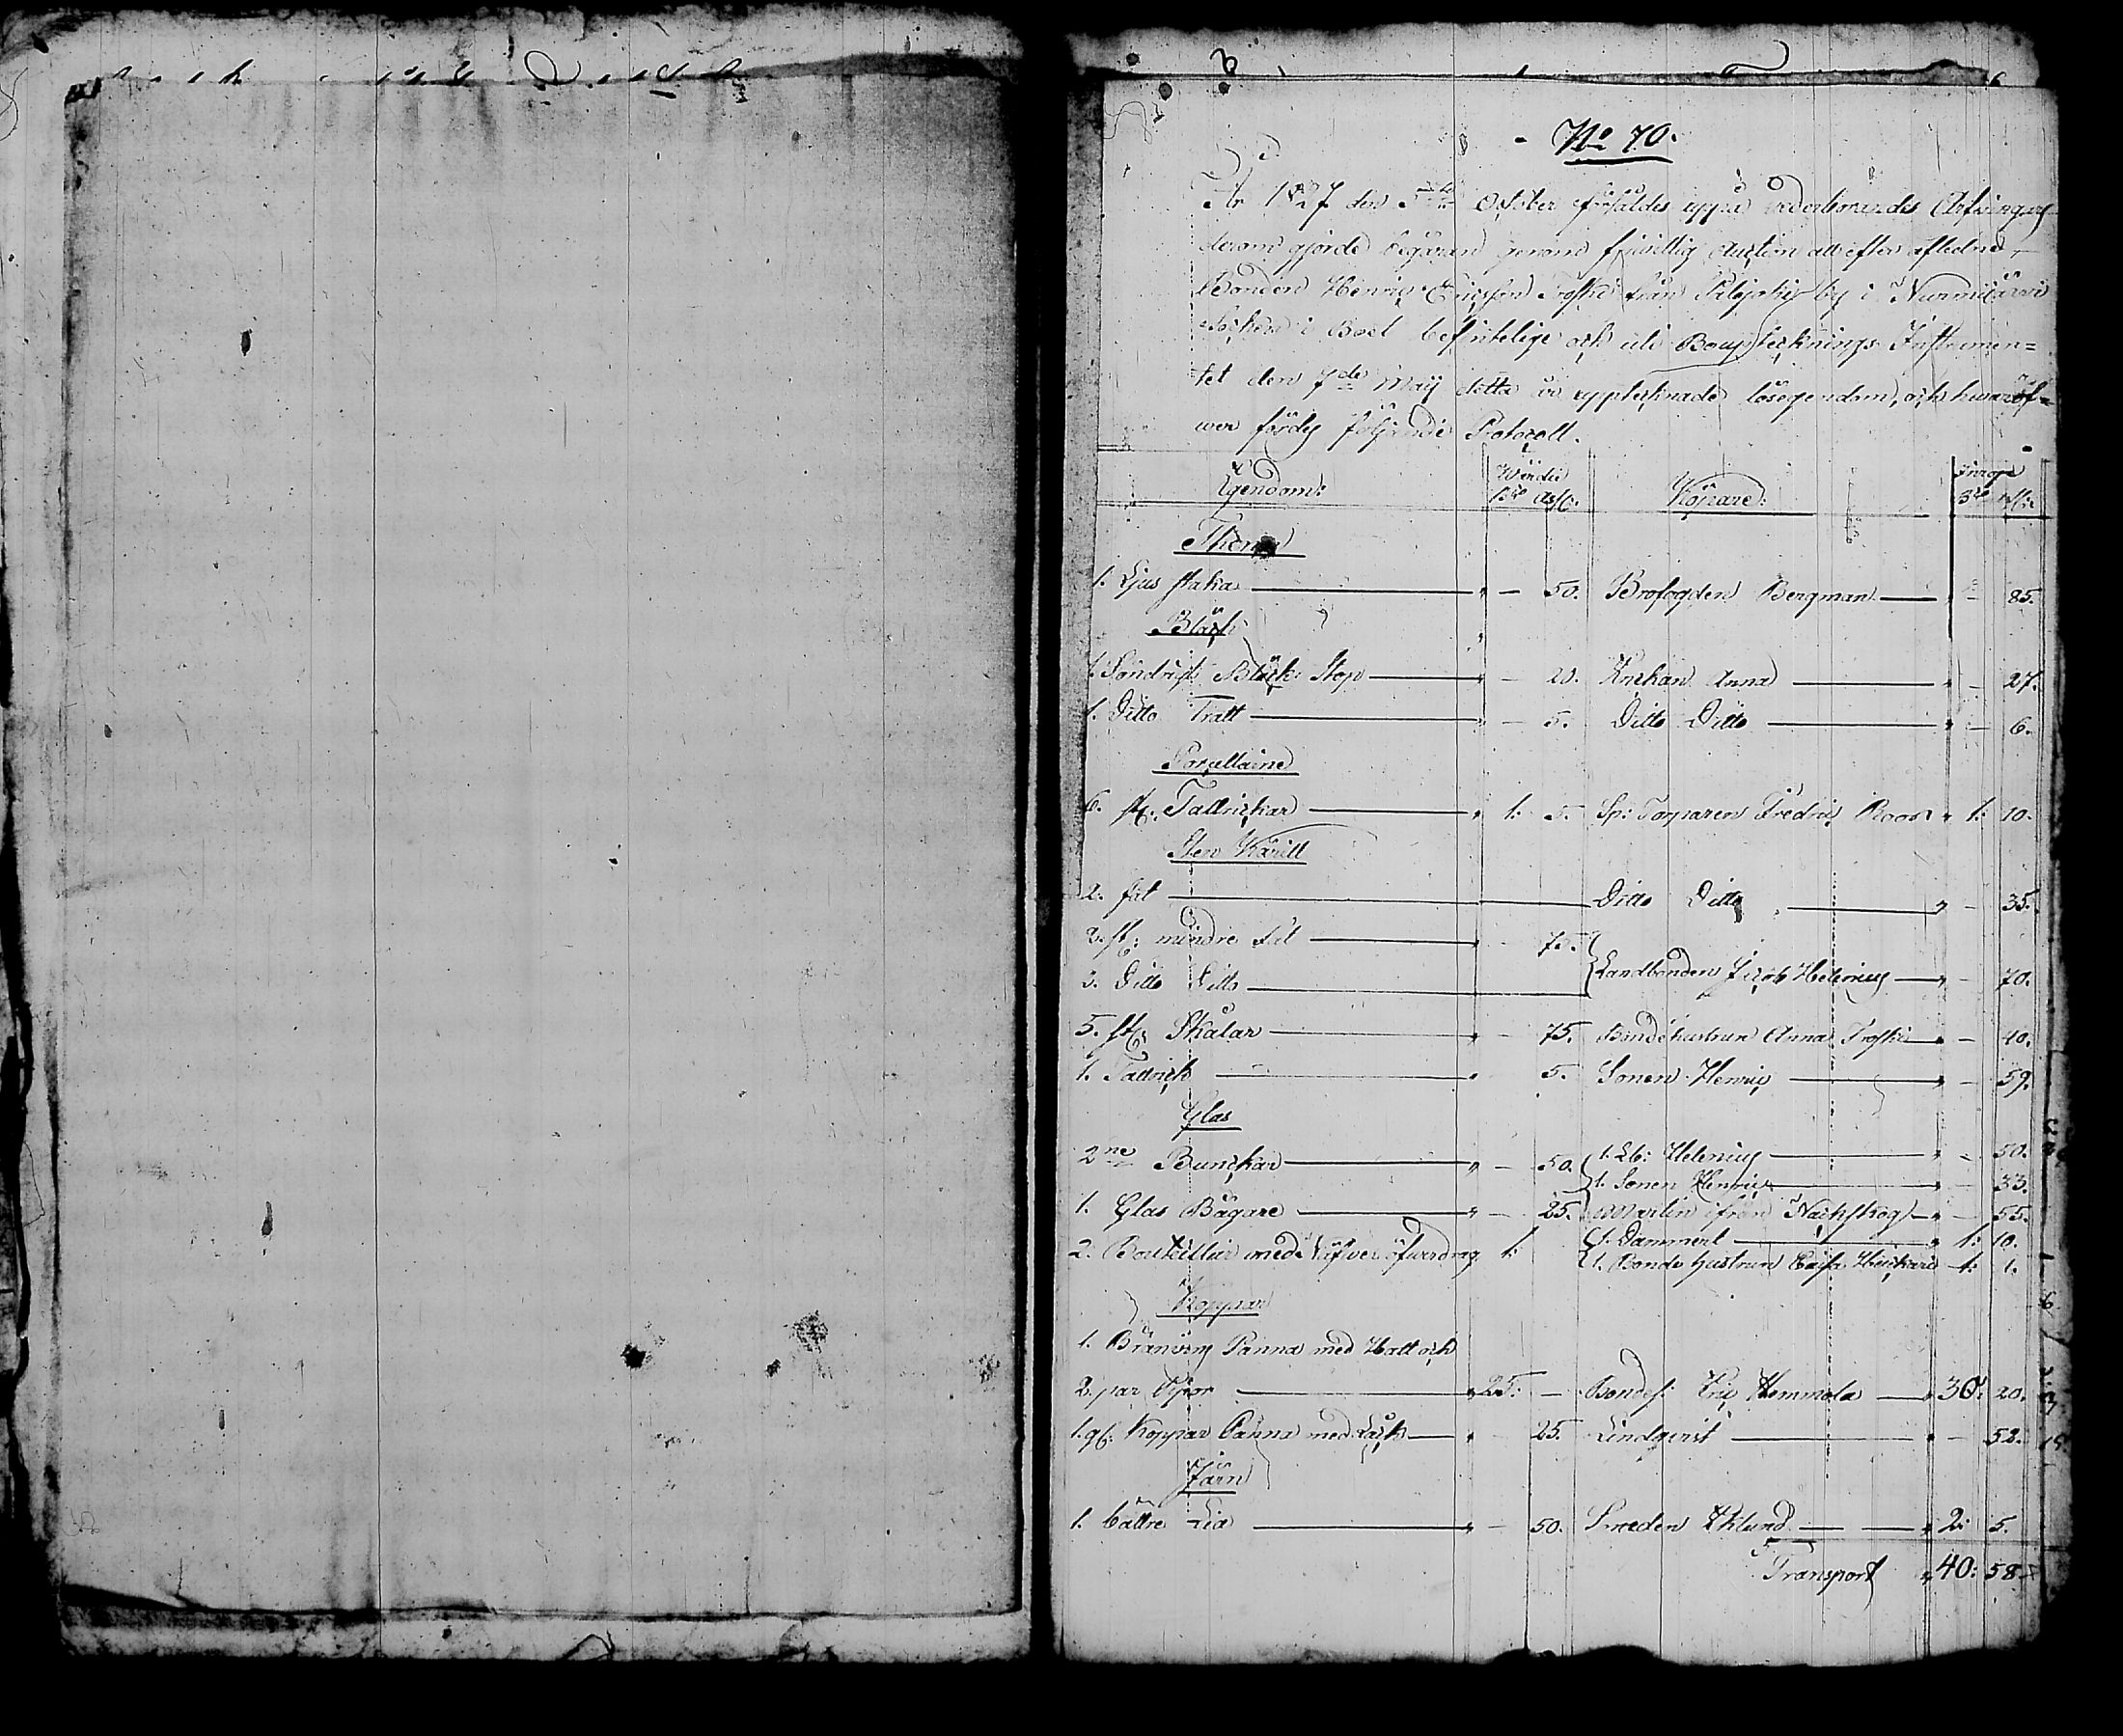 No 70.
År 1827 den 5te October förfaldes uppå vederbörandes Arfvingars
derom gjorde begäran genom frivillig Auction all efter aflidne
Bonden Henric Ericsson Troski från Palojoki by i Nurmijärvi
Sockn i Boet befintelige och uti Bouptecknings Instrumen=
tet den 7de Maij detta år upptecknade lösegendom, och hvaröf=
wer fördes följande Protocoll.
Egendom: Wärde Köpare:
Rbl Ass: Rbl Ass:
Thenn
1. Ljus staka " — 50. Brofogden Bergman " — 85.
Bläck
1. Söndrigt Bläck Stop " — 20. Enkan Anna " — 27.
1. Ditto Tratt " — 5. Ditto Ditto " — 6.
Porcellaine
6. st: Tallrickar " 1: 5. Sp: Torparen Fredric Roos " 1: 10.
Sten Kärill
2. fat Ditto Ditto " — 35.
2. st: mindre fat " — 75. Landbonden Jacob Helenius " — 70.
3. Ditto Ditto
5. st: Skålar " — 75. Bondehustrun Anna Troski " — 40.
1. Tallrick " 5. Sonen Henric " — 59.
Glas
2ne Bunckar " — 50. 1. Lb: Helenius " — 50.
1. Sonen Henric " — 33.
1. Glas Bägare " — 25. Martin ifrån Nackskog " — 55.
2. Bouteiller med Näfver öfverdrag 1: 1. Dammert " 1: 10.
1. Bonde hustrun Caisa 1: 1.
Koppar
1. Bränvins Panna med Hatt och
2. par Pipor " 25: — Bondes: Eric Hemmola " 30: 20.
1. gl: Koppar Panna med Låck " 25. Lindqvist " — 52.
Järn
1. bättre Lia " — 50. Smeden Eklund " 2: 5.
Transport " 40: 58.